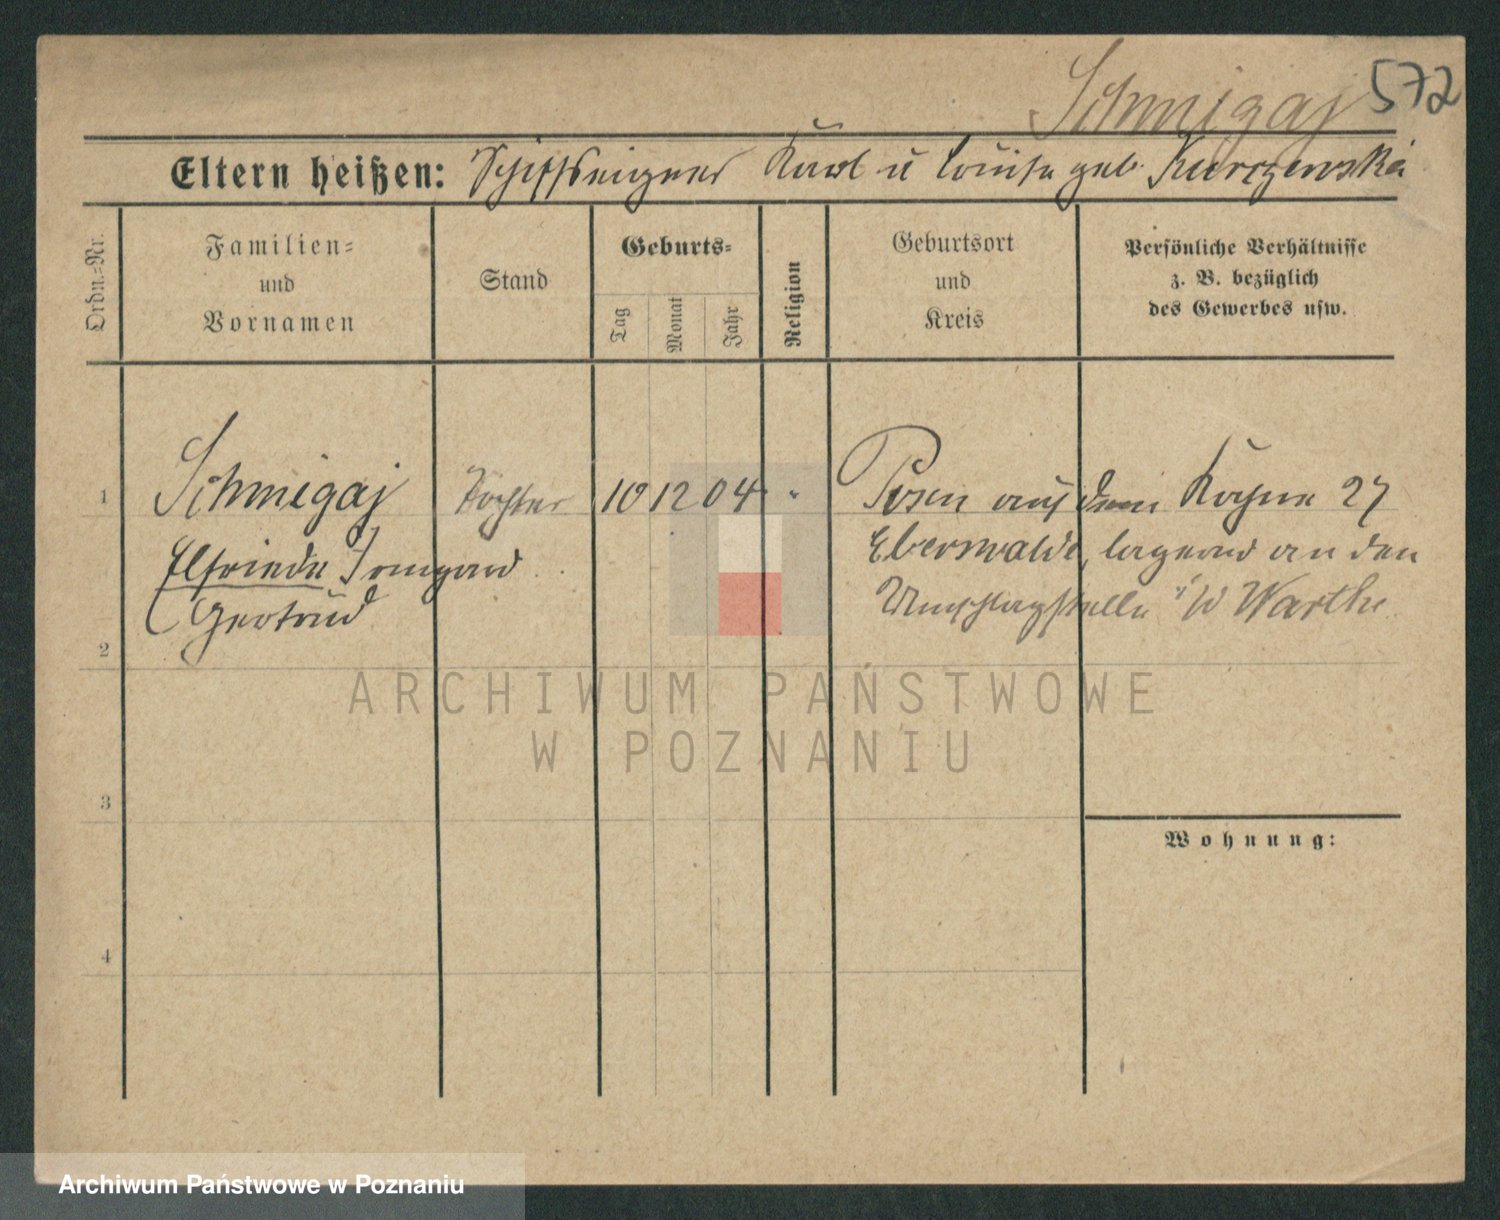 Schmigaj 572
Eltern heißen: Schiffseigner Karl u Louise geb. Kurczewska
Ordn.=Nr.
Familien=
und
Vornamen
Stand
Geburts=
Tag
Monat
Jahr
Religion
Geburtsort
und
Kreis
Persönliche Verhältnisse
z. B. bezüglich
des Gewerbes usw.
1 Schmigaj Tochter 10 12 04 " Posen auf dem Kahne 27
Elfriede Irmgard Eberswalde, lagernd an den
Gertrud Umschlagstelle i/W Warthe
2
ARCHIWUM PAŃSTWOWE
W POZNANIU
3
Wohnung:
4
Archiwum Państwowe w Poznaniu